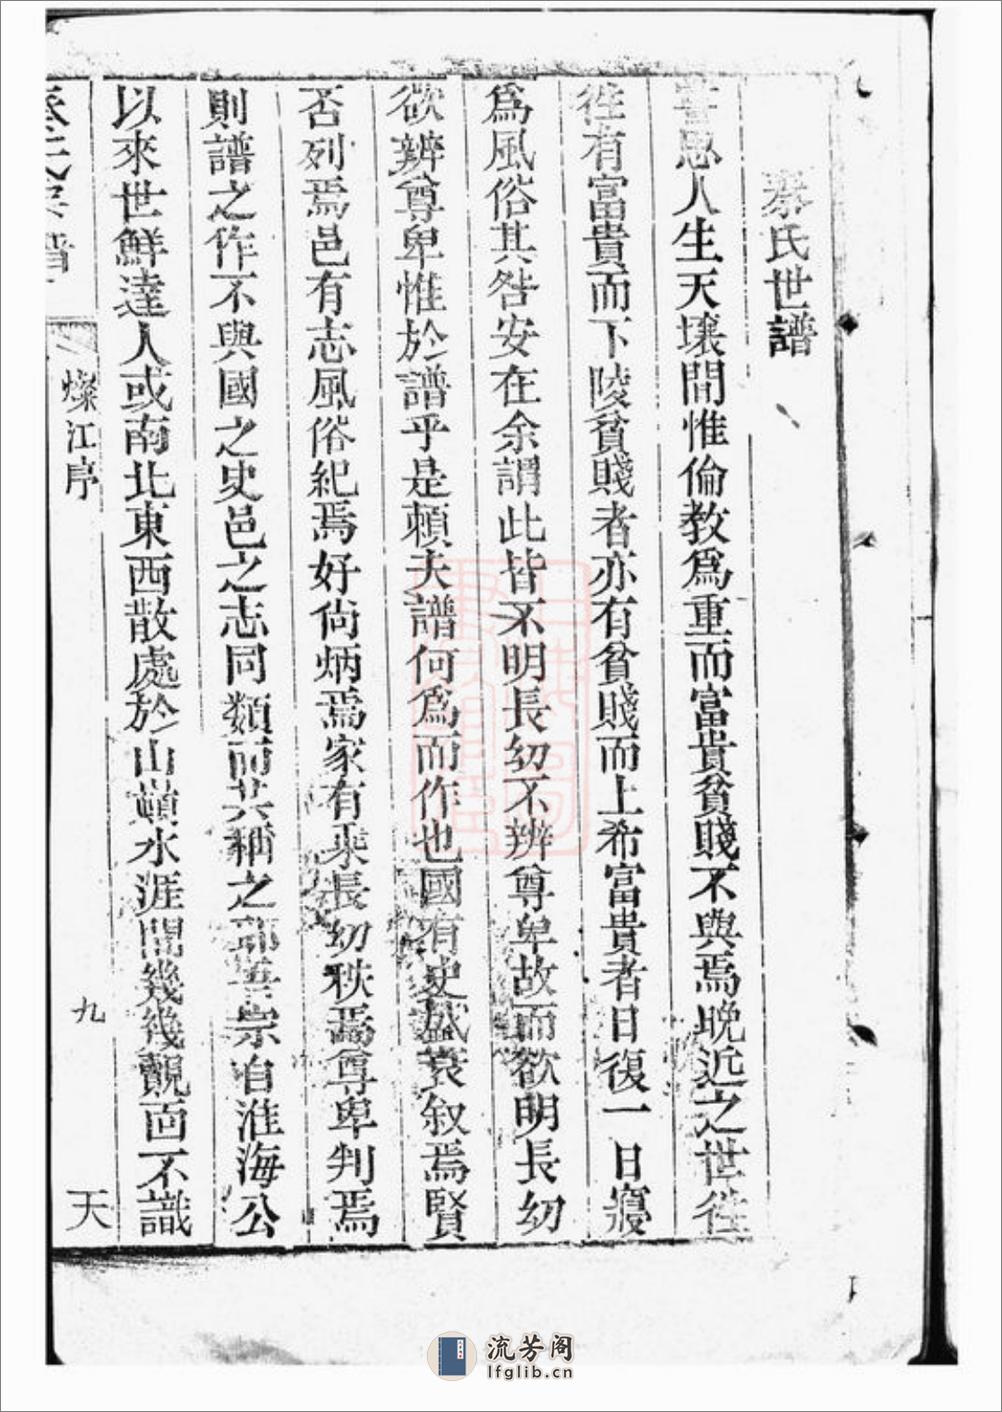 氏世譜
思人生天壤間惟倫教爲重而富貴貧賤不與焉晚近之世徃
徃有富貴而下陵貧賤者亦有貧賤而上希富貴者日復一日寖
爲風俗其咎安在余謂此皆不明長幼不辨尊卑故而欲明長幼
欲辨尊卑惟於譜乎是賴夫譜何爲而作也國有史盛衰叙焉賢
否列焉邑有志風俗紀焉好尚炳焉家有乘長幼秩焉尊卑判焉
則譜之作不與國之史邑之志同類而共稱之宗自淮海公
以來世鮮達人或南北東西散處於山巔水涯間幾幾覿面不識
燦江序
九
天
流芳阁
lfglib.cn